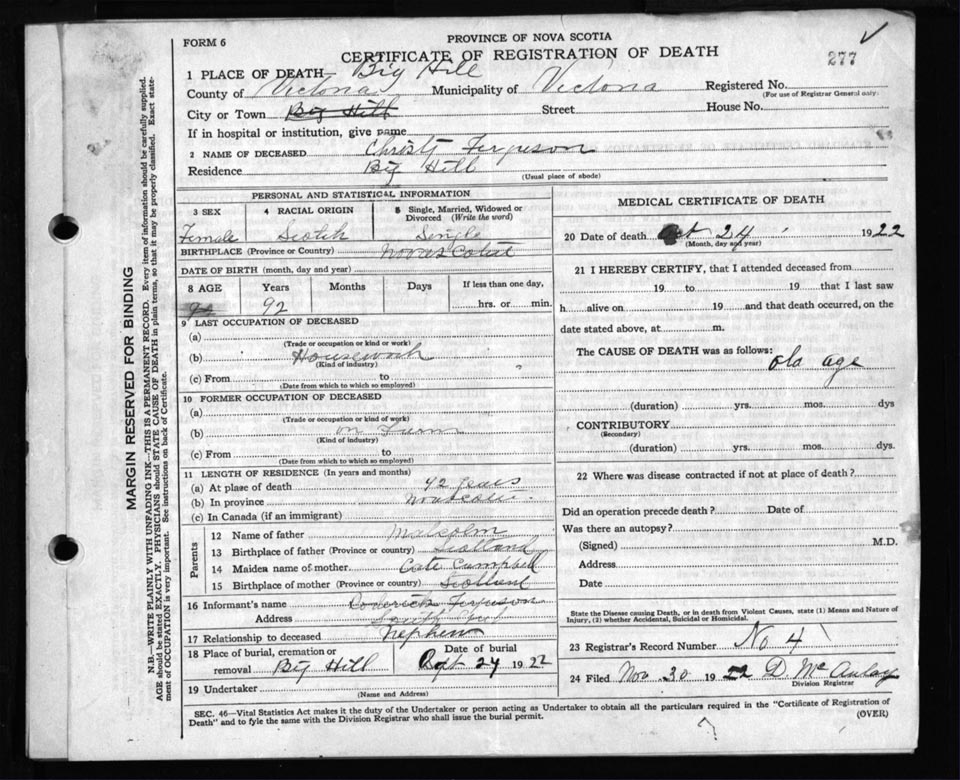 FORM 6
PROVINCE OF NOVA SCOTIA
CERTIFICATE OF REGISTRATION OF DEATH
277
1 PLACE OF DEATH Big Hill
County of Victoria Municipality of Victoria Registered No.
(For use of Registrar General only)
City or Town Big Hill Street House No.
If in hospital or institution, give name
2 NAME OF DECEASED Christy Ferguson
Residence Big Hill
(Usual place of abode)
PERSONAL AND STATISTICAL INFORMATION
3 SEX 4 RACIAL ORIGIN 5 Single, Married, Widowed or Divorced (Write the word)
Female Scotch Single
BIRTHPLACE (Province or Country) Nova Scotia
DATE OF BIRTH (month, day and year)
8 AGE Years Months Days If less than one day,
92 hrs. or min.
9 LAST OCCUPATION OF DECEASED
(a)
(Trade or occupation or kind or work)
(b) Housework
(Kind of industry)
(c) From to
(Date from which to which so employed)
10 FORMER OCCUPATION OF DECEASED
(a)
(Trade or occupation or kind of work)
(b) on Farm
(Kind of industry)
(c) From to
(Date from which to which so employed)
11 LENGTH OF RESIDENCE (In years and months)
(a) At place of death 42 years
(b) In province Nova Scotia
(c) In Canada (if an immigrant)
Parents
12 Name of father Malcolm
13 Birthplace of father (Province or country) Scotland
14 Maiden name of mother Cate Campbell
15 Birthplace of mother (Province or country) Scotland
16 Informant's name Roderick Ferguson
Address South
17 Relationship to deceased Nephew
18 Place of burial, cremation or removal Big Hill Date of burial Oct 27 1922
19 Undertaker
(Name and Address)
MEDICAL CERTIFICATE OF DEATH
20 Date of death Oct 24 1922
(Month, day and year)
21 I HEREBY CERTIFY, that I attended deceased from
19 to 19 that I last saw
h alive on 19 and that death occurred, on the
date stated above, at m.
The CAUSE OF DEATH was as follows:
old age
(duration) yrs. mos. dys
CONTRIBUTORY
(Secondary)
(duration) yrs. mos. dys
22 Where was disease contracted if not at place of death?
Did an operation precede death? Date of
Was there an autopsy?
(Signed) M.D.
Address
Date
State the Disease causing Death, or in death from Violent Causes, state (1) Means and Nature of
Injury, (2) whether Accidental, Suicidal or Homicidal.
23 Registrar's Record Number No 4
24 Filed Nov 30 1922 D. McAulay
Division Registrar
SEC. 46—Vital Statistics Act makes it the duty of the Undertaker or person acting as Undertaker to obtain all the particulars required in the "Certificate of Registration of
Death" and to fyle the same with the Division Registrar who shall issue the burial permit.
(OVER)
MARGIN RESERVED FOR BINDING
N.B.—WRITE PLAINLY WITH UNFADING INK—THIS IS A PERMANENT RECORD. Every item of information should be carefully supplied.
AGE should be stated EXACTLY. PHYSICIANS should STATE CAUSE OF DEATH in plain terms, so that it may be properly classified. Exact state-
ment of OCCUPATION is very important. See instructions on back of Certificate.